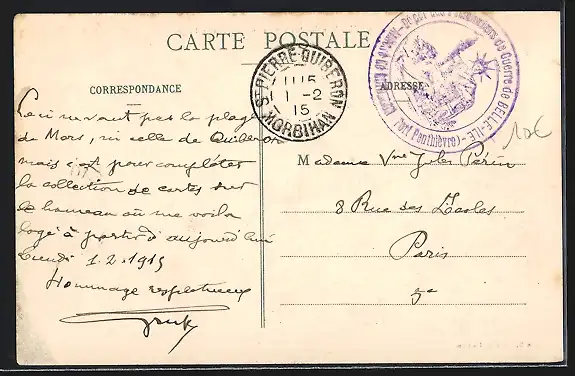 CARTE POSTALE
CORRESPONDANCE
ADRESSE
ST PIERRE-QUIBERON
11 15
1-2
15
MORBIHAN
Dépôt des Prisonniers de Guerre de BELLE-ILE
(Fort Penthièvre)
10€
Ceci ne vaut pas la plage
de Mors, ni celle de Quiberon
mais c'est pour compléter
la collection de cartes sur
le hameau où me voila
logé à partir d'aujourd'hui
Lundi 1.2.1915
Hommage respectueux
Madame Vve Jules Périn
8 Rue des Écoles
Paris
5e